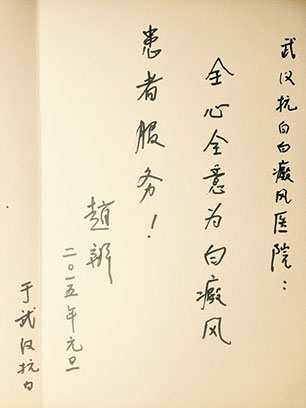 武汉抗白白癜风医院：
全心全意为白癜风
患者服务！
趙辨
二〇一五年元旦
于武汉抗白